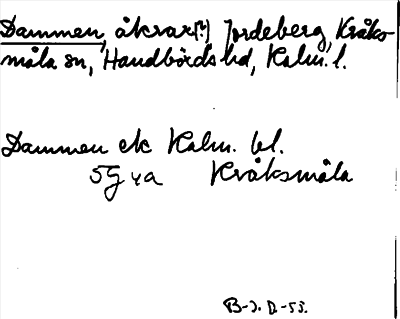 Dammen, åkrar(?) Jordeberg, Kråks-
måla sn, Handbörds hd, Kalm. l.
Dammen ek Kalm. bl.
5G 4a Kråksmåla
B-J. D.-53.